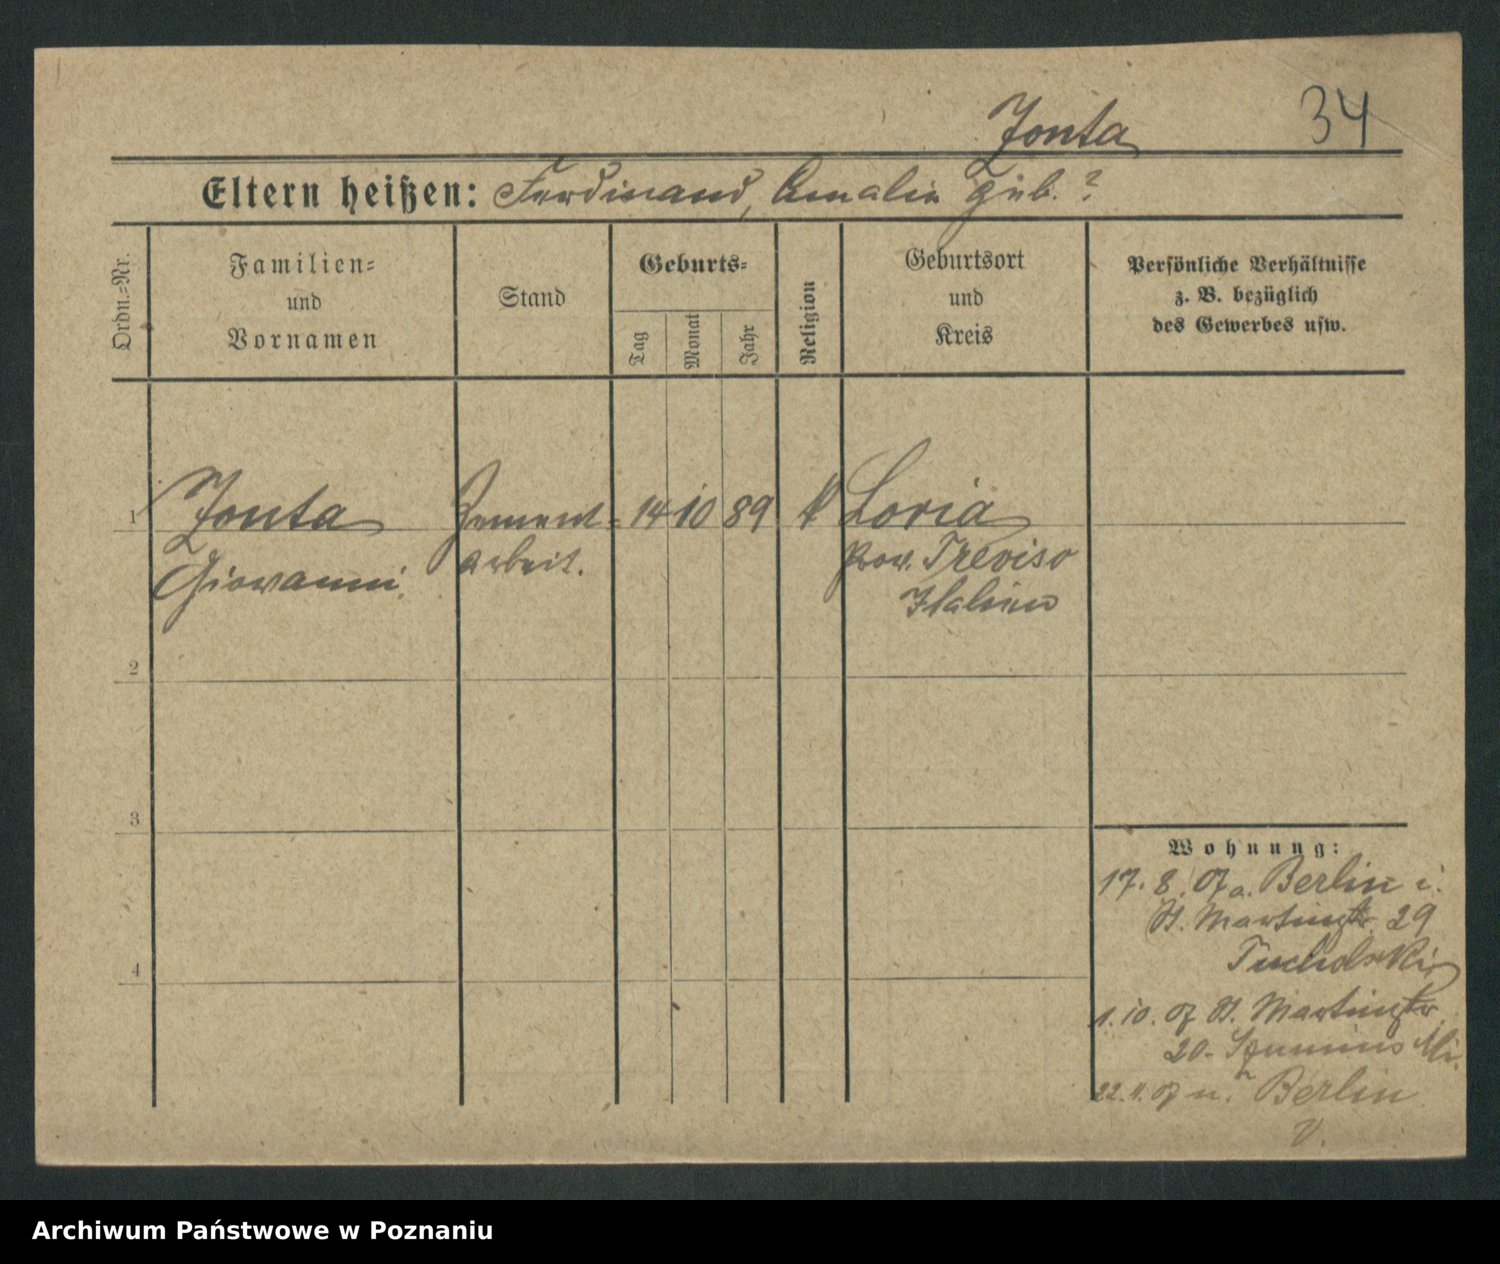 34
Zonta
Eltern heißen: Ferdinand, Amalie geb. ?
Ordn.=Nr.
Familien=
und
Vornamen
Stand
Geburts=
Tag
Monat
Jahr
Religion
Geburtsort
und
Kreis
Persönliche Verhältnisse
z. B. bezüglich
des Gewerbes usw.
1 Zonta Zement= 14 10 89 K Loria
Giovanni. Arbeit. Prov. Treviso
Italien
2
3
4
Wohnung:
17. 8. 07 a. Berlin i.
St. Martinstr. 29
Tucholski
1. 10. 07 St. Martinstr.
20-
22. 11. 07 n. Berlin
V.
Archiwum Państwowe w Poznaniu